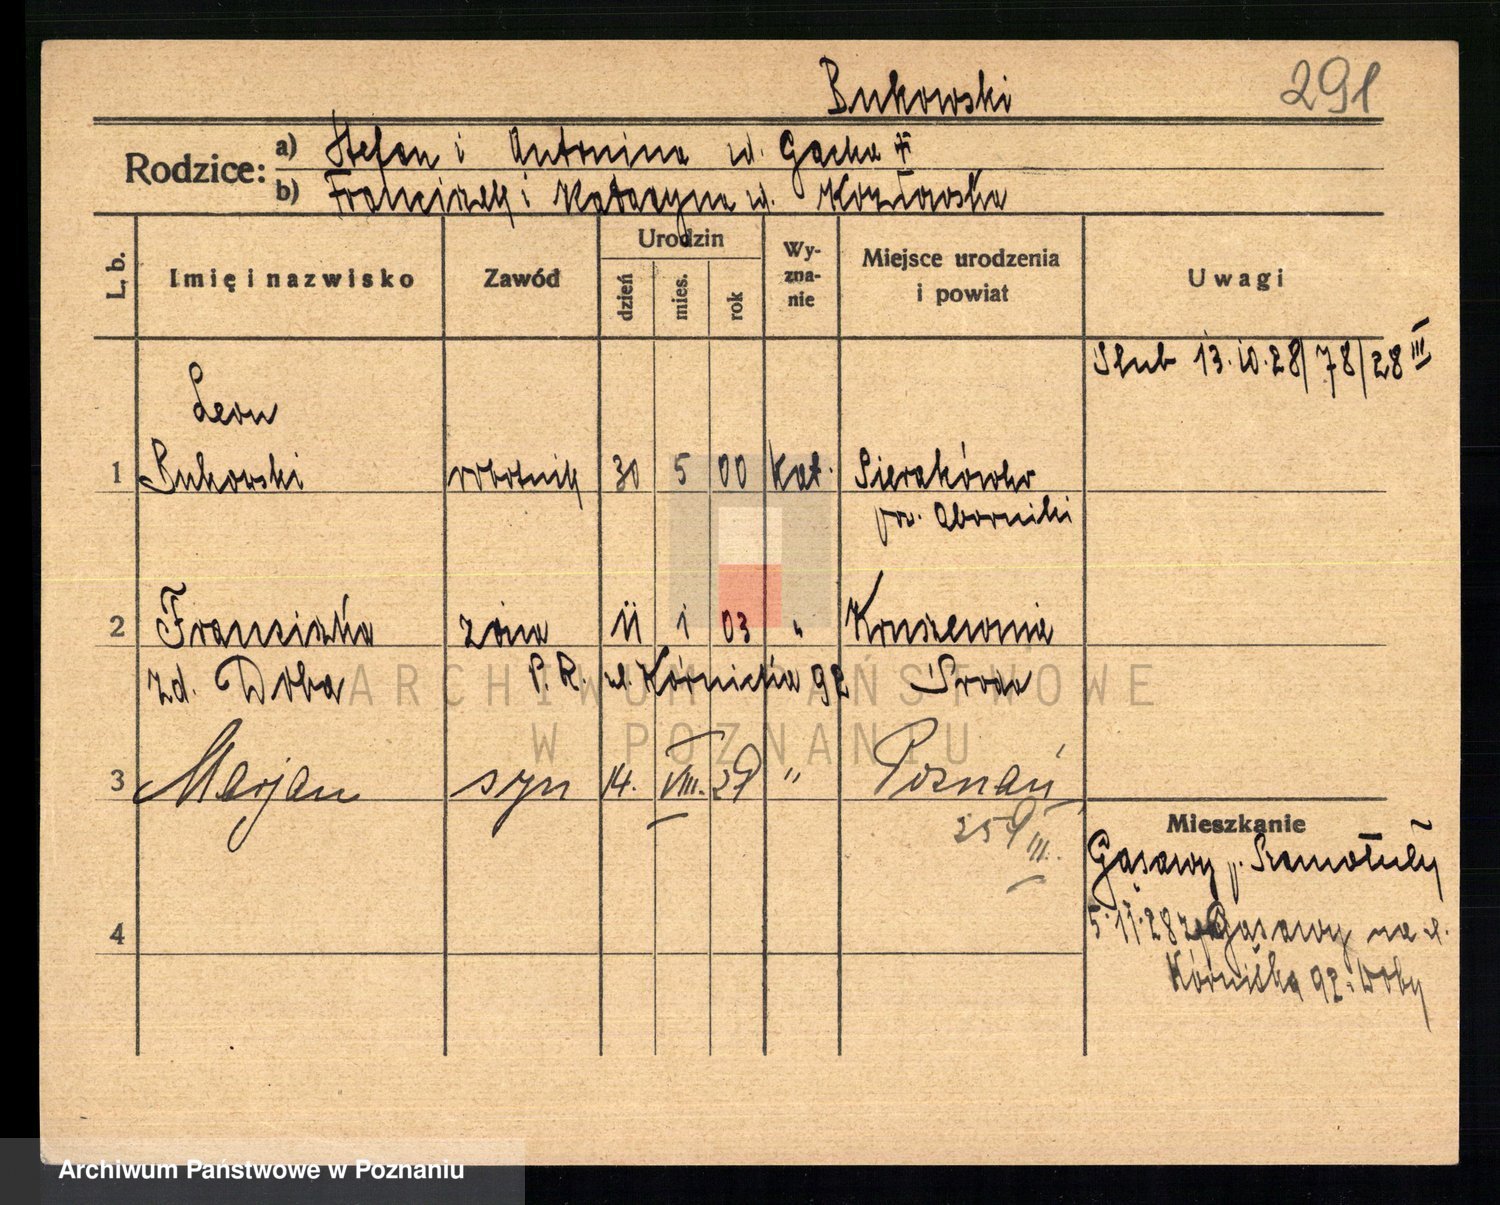 Bukowski 291
Rodzice: a) Stefan i Antonina zd. Gacka
b) Franciszek i Katarzyna zd. Kozłowska
L. b. Imię i nazwisko Zawód Urodzin dzień mies. rok Wyznanie Miejsce urodzenia i powiat Uwagi
Ślub 13.10.28/78/28 III
Leon
1 Bukowski robotnik 30 5 00 kat. Sierakówko
pow. Oborniki
2 Franciszka żona 11 1 03 " Kruszewnia
zd. Doba P. R. ul. Kórnicka 92 Środa
3 Marjan syn 14. VIII. 29 " Poznań
259 III.
Mieszkanie
Gąsawy p. Szamotuły
4
5.11.28 z Gąsawy na ul.
Kórnicka 92. Doby
ARCHIWUM PAŃSTWOWE
W POZNANIU
Archiwum Państwowe w Poznaniu